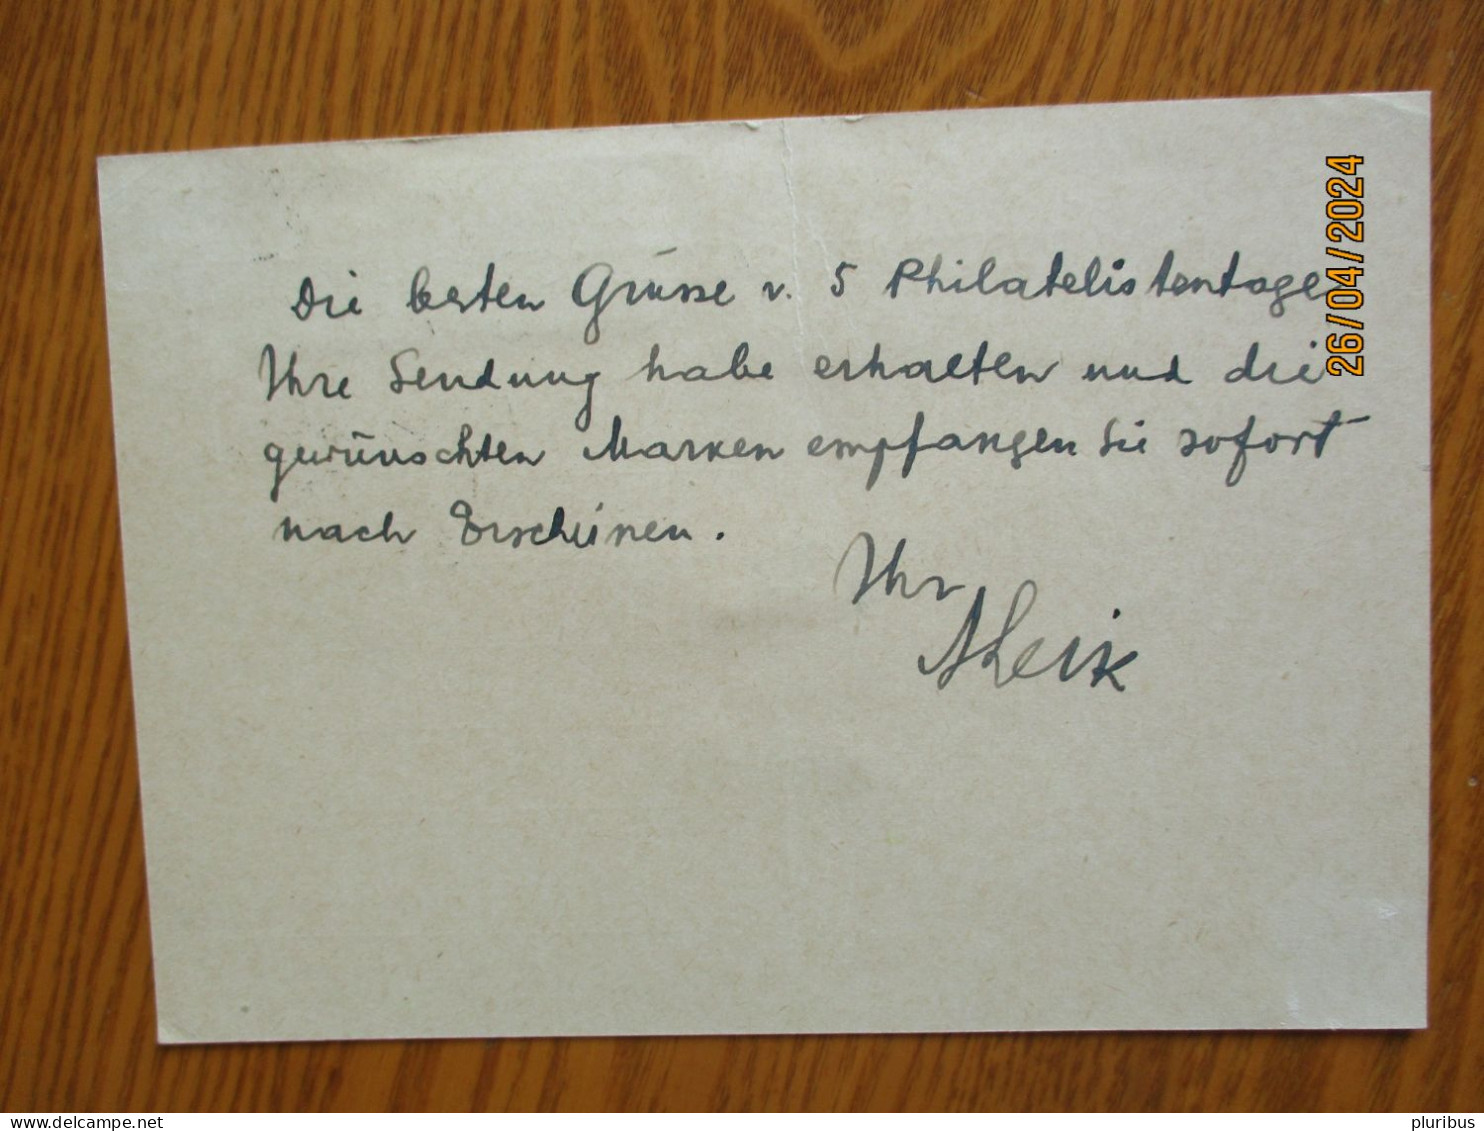 Die besten Grüsse v. 5 Philatelistentage
Ihre Sendung habe erhalten und die
gewünschten Marken empfangen Sie sofort
nach Erscheinen.
Ihr
26/04/2024
delcampe.net
pluribus